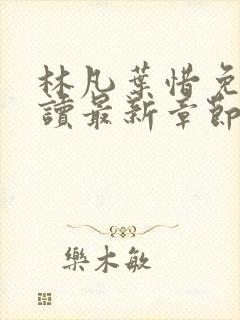 林凡葉惜免
讀最新章節
樂木敏